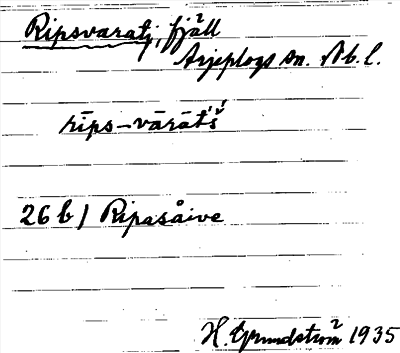 Ripsvaratj, fjäll
Arjeplogs sn. Nb. l.
rīps-vārāt́š́
26 b / Ripasåive
H. Grundström 1935